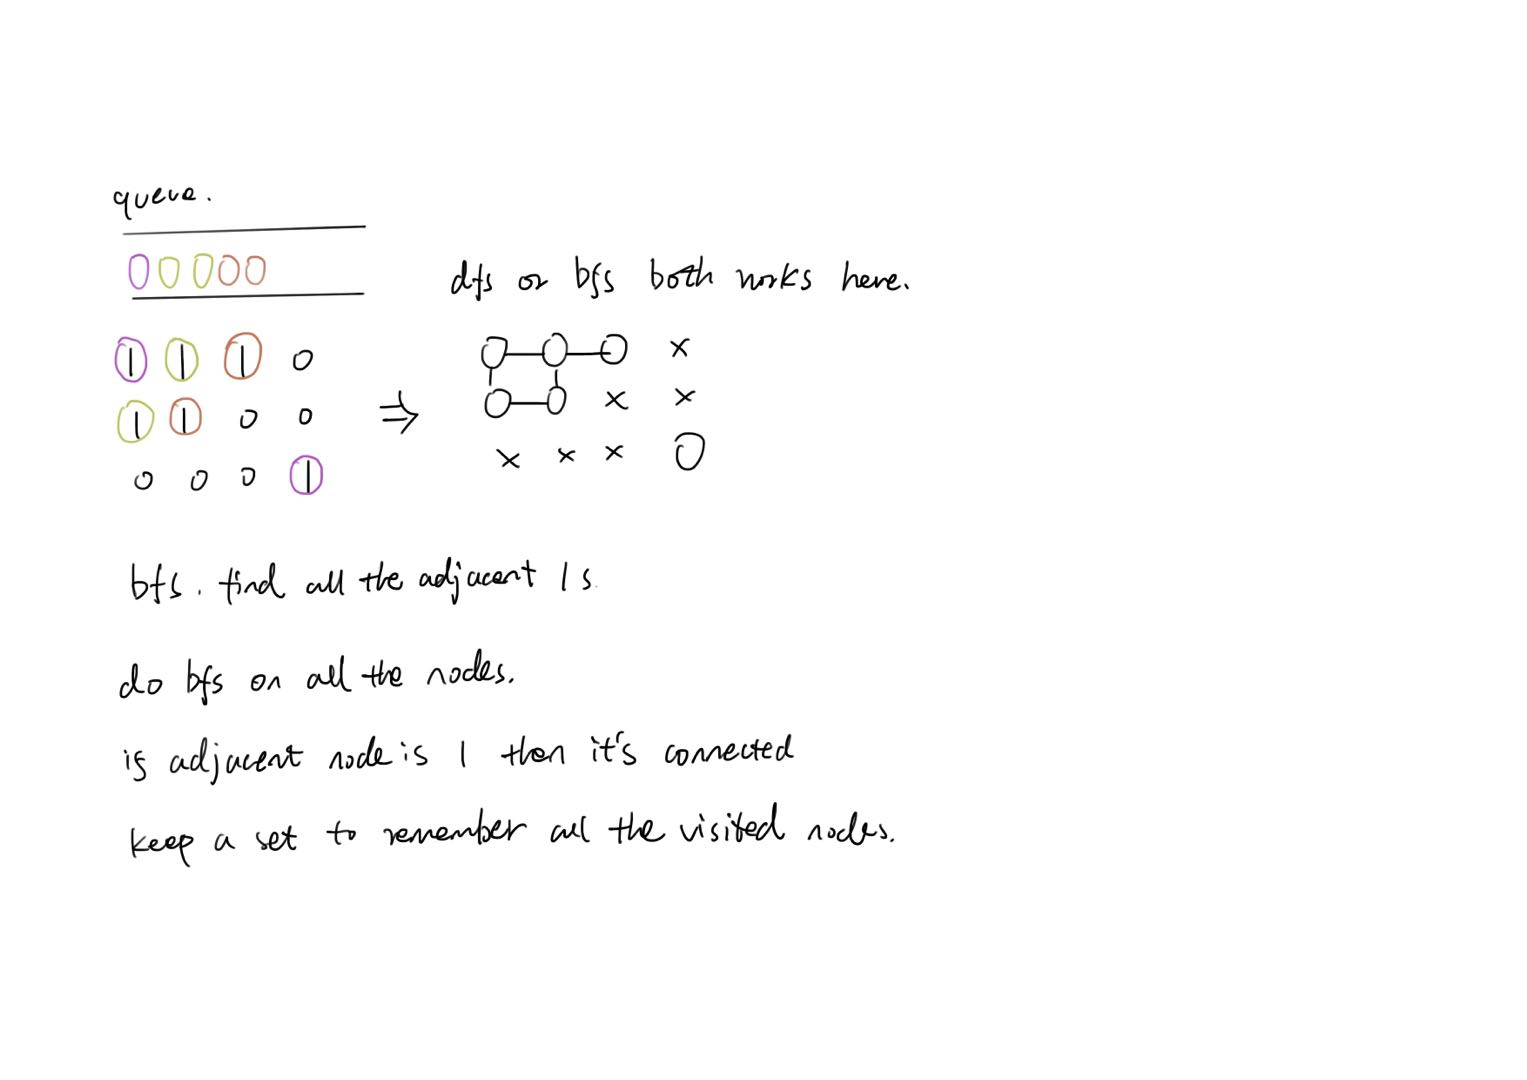 queue.
0 0 0 0 0
dfs or bfs both works here.
1 1 1 0
1 1 0 0
0 0 0 1
⇒
x
x x
x x x
bfs. find all the adjacent 1s.
do bfs on all the nodes.
is adjacent node is 1 then it's connected
keep a set to remember all the visited nodes.